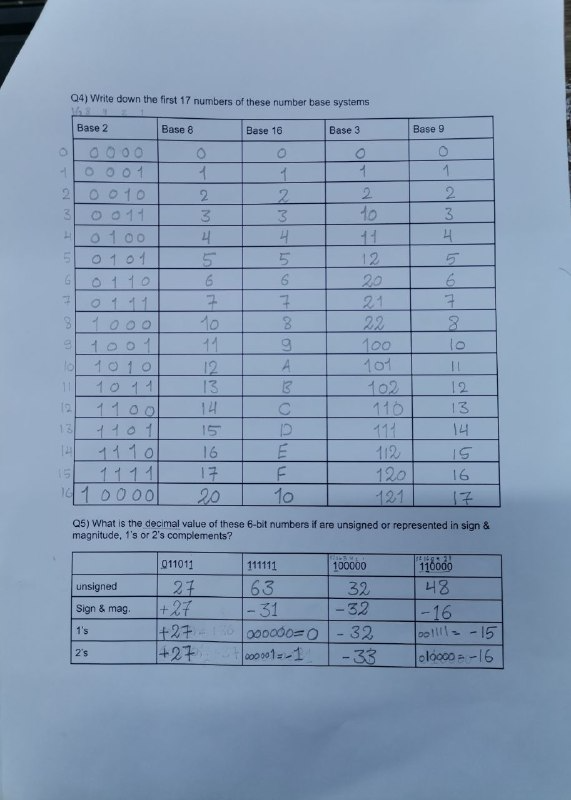 Q4) Write down the first 17 numbers of these number base systems
16 8 4 2 1
Base 2 Base 8 Base 16 Base 3 Base 9
0 0000 0 0 0 0
1 0001 1 1 1 1
2 0010 2 2 2 2
3 0011 3 3 10 3
4 0100 4 4 11 4
5 0101 5 5 12 5
6 0110 6 6 20 6
7 0111 7 7 21 7
8 1000 10 8 22 8
9 1001 11 9 100 10
10 1010 12 A 101 11
11 1011 13 B 102 12
12 1100 14 C 110 13
13 1101 15 D 111 14
14 1110 16 E 112 15
15 1111 17 F 120 16
16 10000 20 10 121 17
Q5) What is the decimal value of these 6-bit numbers if are unsigned or represented in sign &
magnitude, 1's or 2's complements?
011011 111111 100000 110000
unsigned 27 63 32 48
Sign & mag. +27 -31 -32 -16
1's +27 000000=0 -32 001111= -15
2's +27 000001=-1 -33 010000=-16